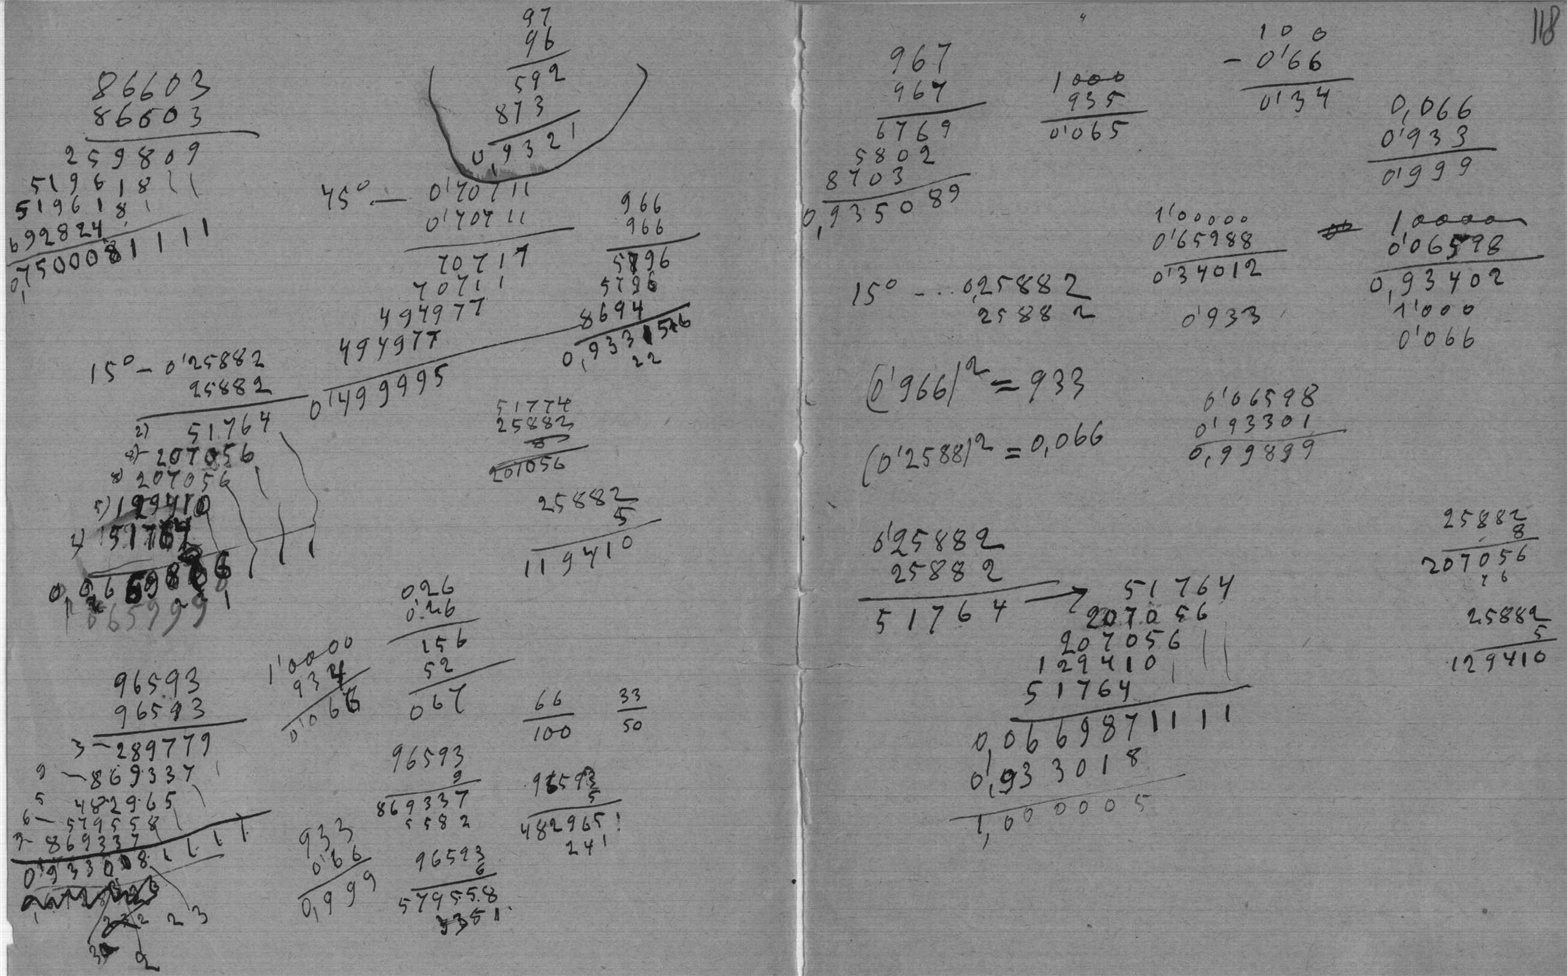 97
96
592
873
0,9321
86603
86603
259809
519618
519618
692824
0,750008
45° — 0'70711
0'70711
70717
70711
494977
494977
0'499995
966
966
5796
5796
8694
0,933156
22
15° — 0'25882
25882
2) 51764
8) 207056
8) 207056
5) 129410
2) 51764
51774
25882
8
201056
25882
5
119410
0,26
0,26
156
52
067
1'0000
934
0'066
66
100
33
50
96593
96593
3 — 289779
9 — 869337
5 482965
6 — 579558
9 - 869337
0'933008
23
96593
9
869337
5582
96593
5
482965
241
933
0'66
0,999
96593
6
579558
3351
118
967
967
6769
5802
8703
0,935089
1000
935
0'065
100
- 0'66
0'34
0,066
0'933
0'999
1'00000
0'65988
0'34012
0'933
10000
0'06598
0,93402
1'000
0'066
15° - ... 0,25882
25882
(0'966)² = 933
(0'2588)² = 0,066
0'06598
0'93301
0,99899
0'25882
25882
51764
51764
207056
207056
129410
51764
0,066987
0,933018
1,000005
25882
8
207056
76
25882
5
129410